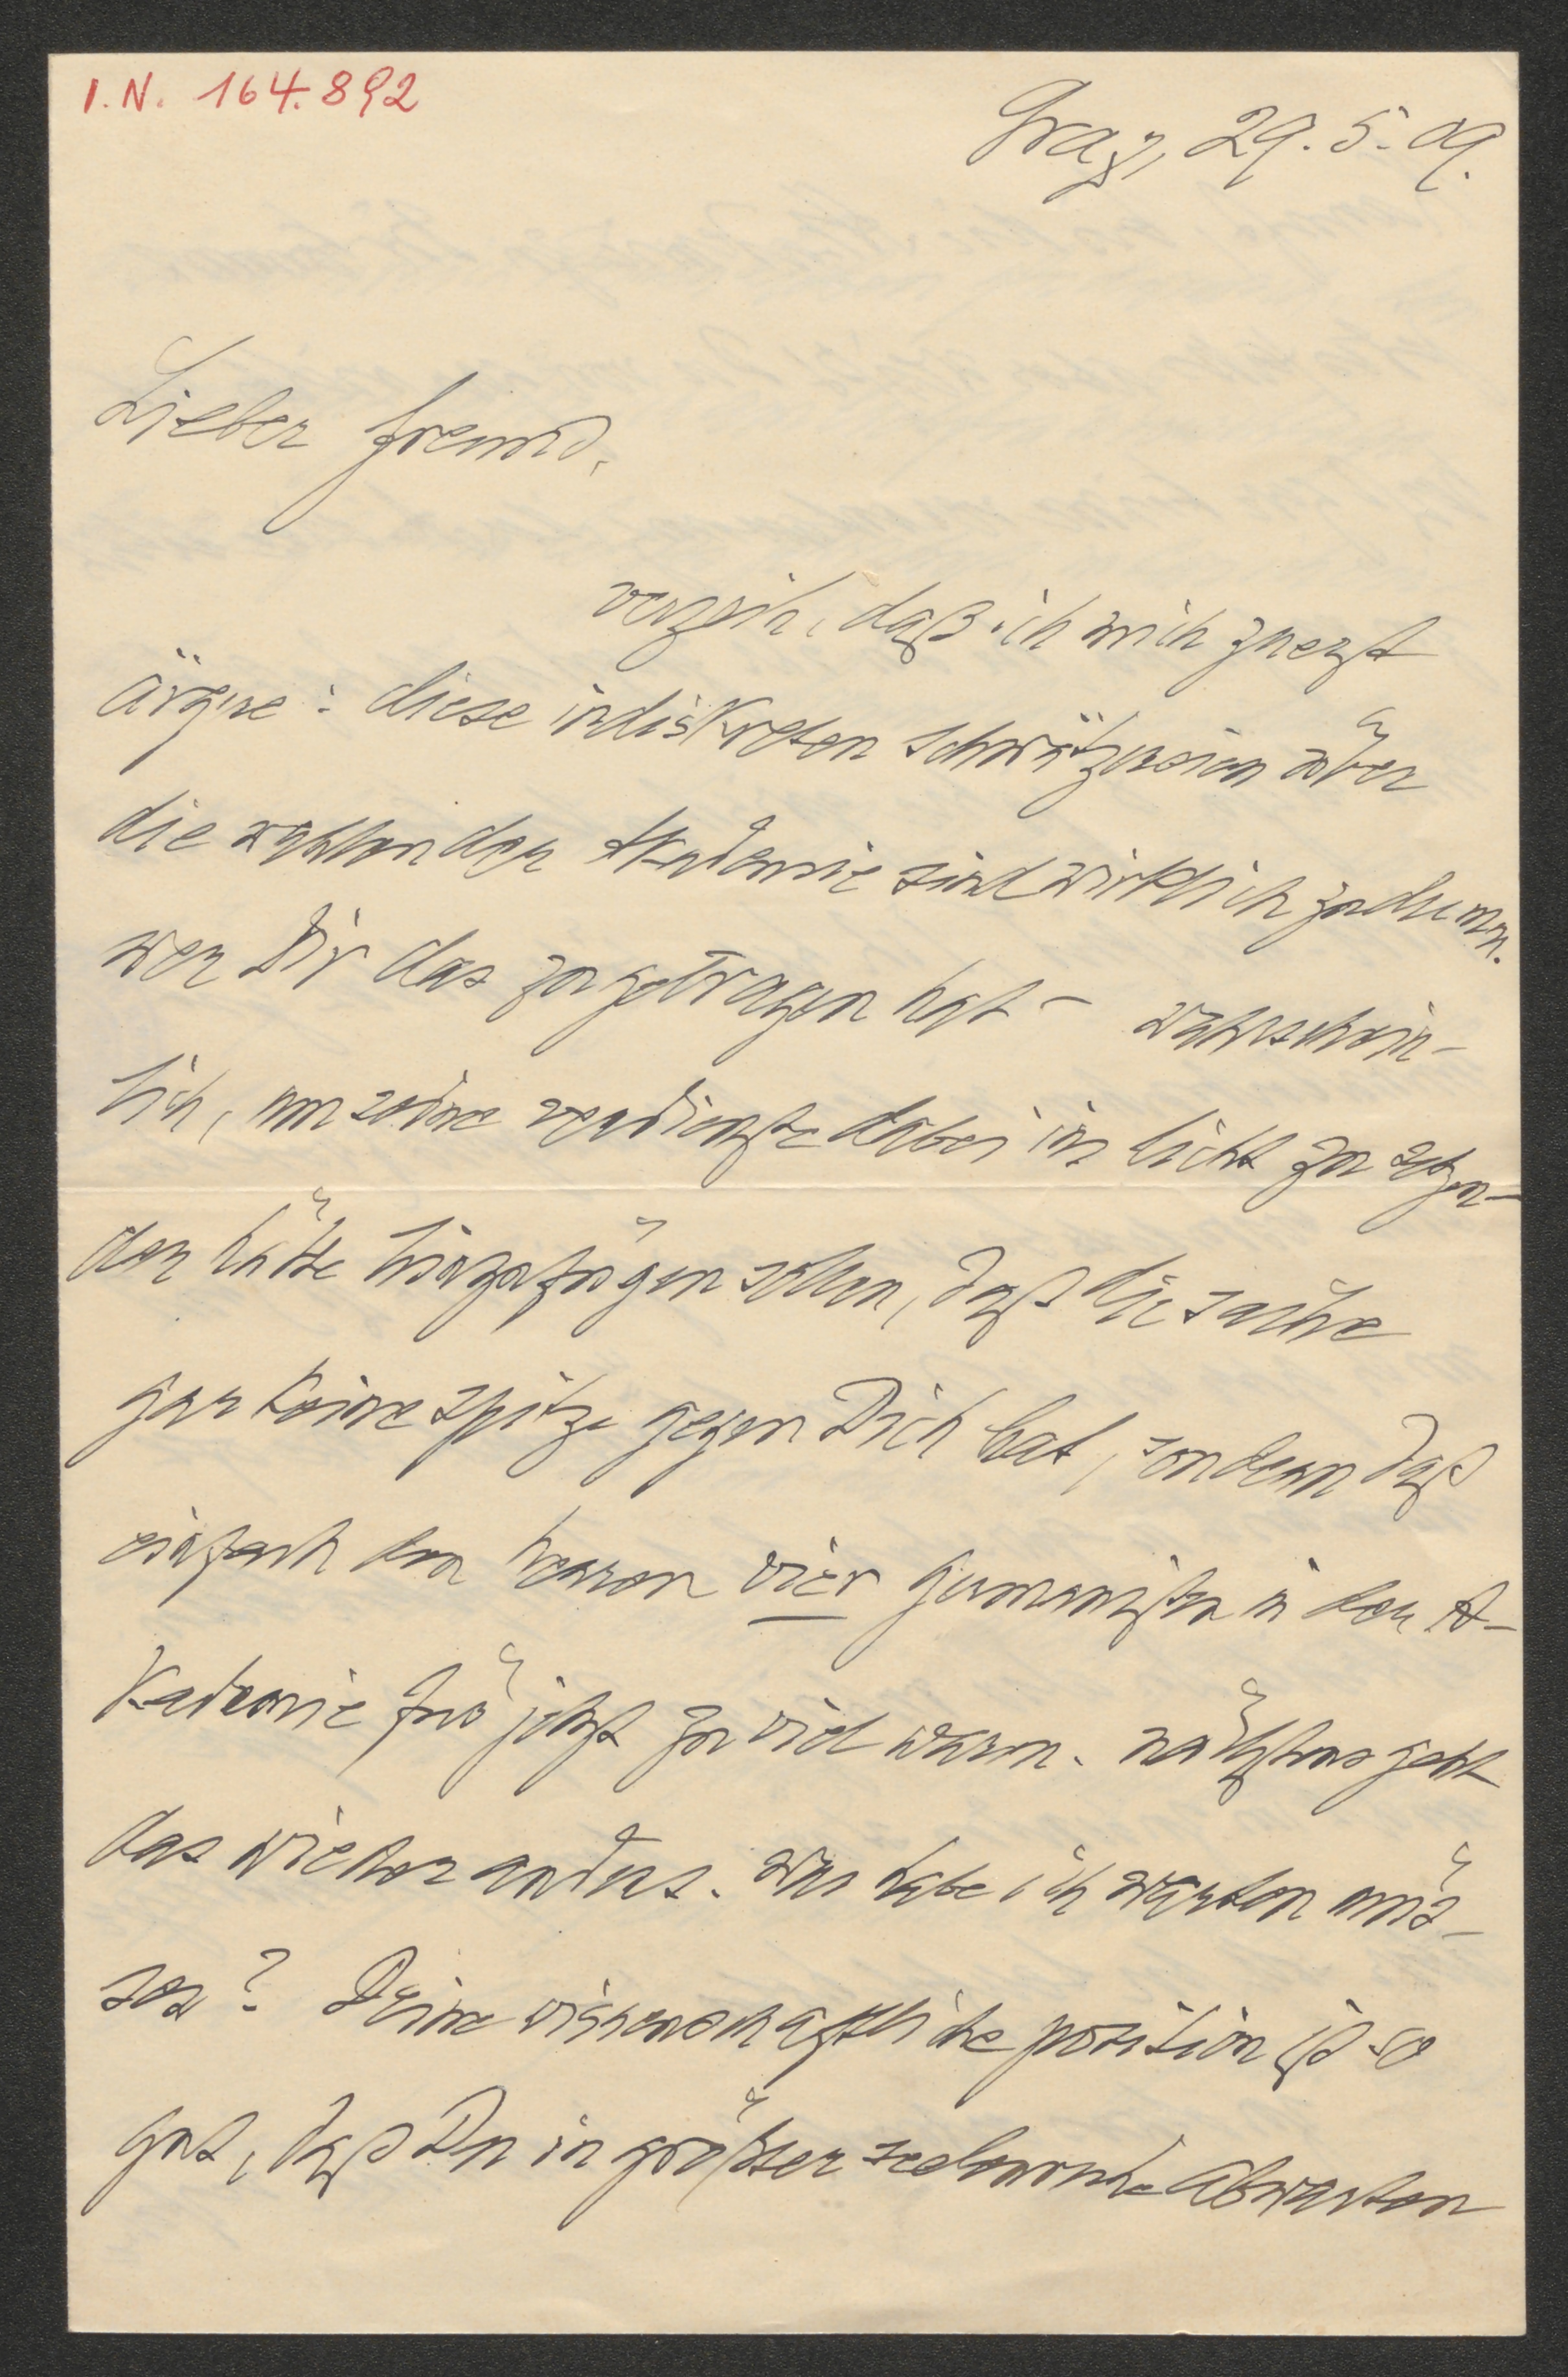 I.N. 164.892
Graz, 29. 5. 09.
Lieber freund,
verzeih, daß ich mich zuerst
ärgere: diese indiskreten schwätzereien über
die wahlen der Akademie sind wirklich zu dumm.
wer Dir das zugetragen hat – wahrschein-
lich, um seine verdienste dabei ins licht zu setzen –
der hätte hinzufügen sollen, daß die sache
gar keine spitze gegen Dich hat, sondern daß
einfach den herren vier germanisten in der A-
kademie für jetzt zu viel waren. nächstens geht
das wieder anders. was habe ich warten müs-
sen? Deine wissenschaftliche position ist so
gut, daß Du in größter seelenruhe abwarten